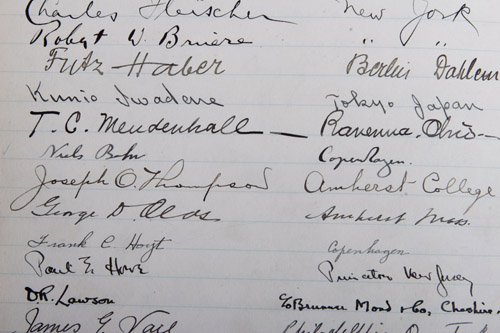 Charles Fleischer New York
Robert W. Bruere " "
Fritz Haber Berlin Dahlem
Kunio Iwadare Tokyo Japan
T. C. Mendenhall — Ravenna, Ohio —
Niels Bohr Copenhagen.
Joseph O. Thompson Amherst College
George D. Olds Amherst Mass.
Frank C. Hoyt Copenhagen
Paul E. Howe Princeton New Jersey
D.R. Lawson c/o Brunner Mond & Co, Cheshire
James G. Vail